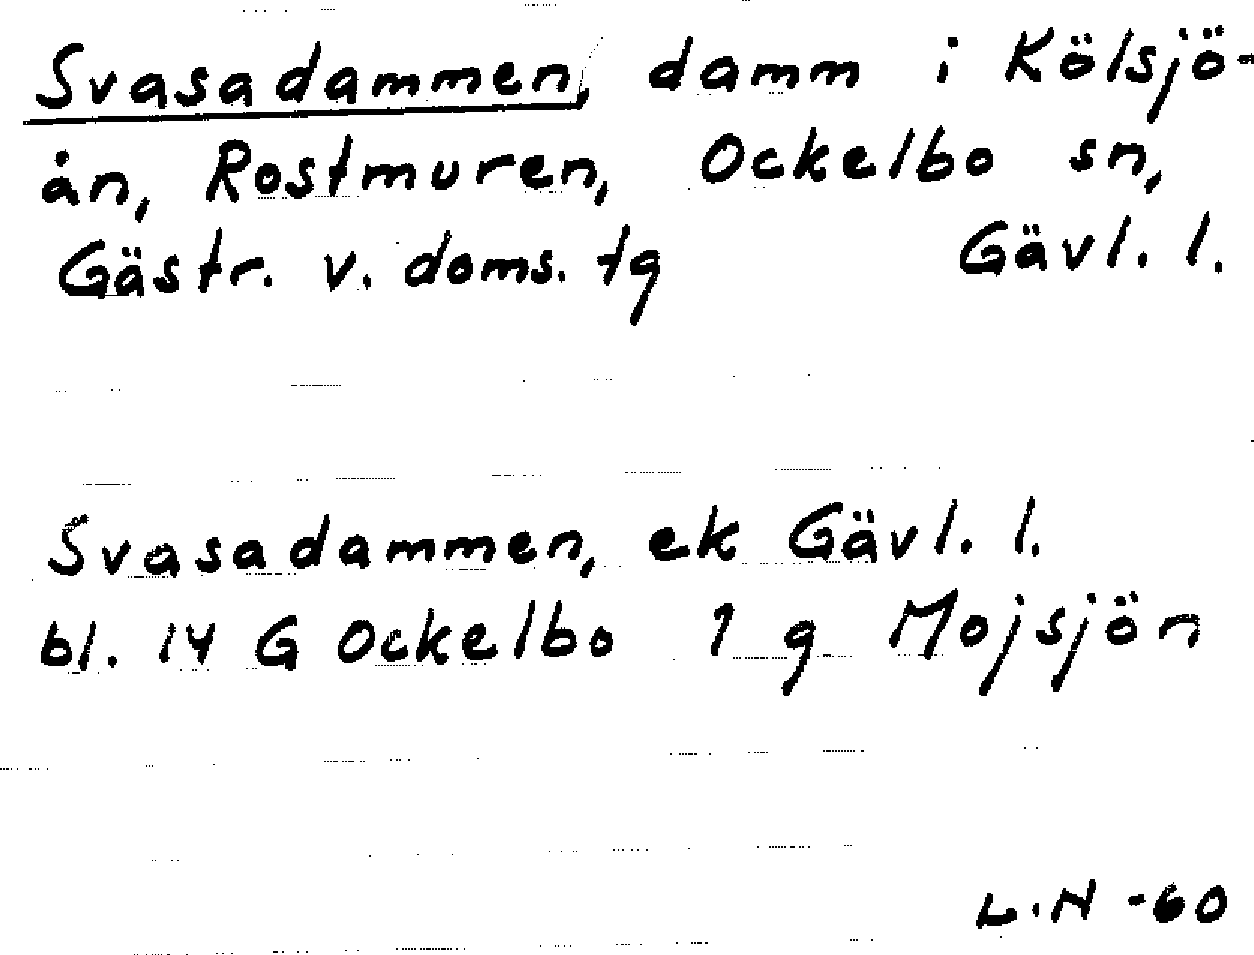 Svasadammen, damm i Kölsjö-
ån, Rostmuren, Ockelbo sn,
Gästr. v. doms. tg Gävl. l.
Svasadammen, ek Gävl. l.
bl. 14 G Ockelbo 1 g Mojsjön
L.N -60